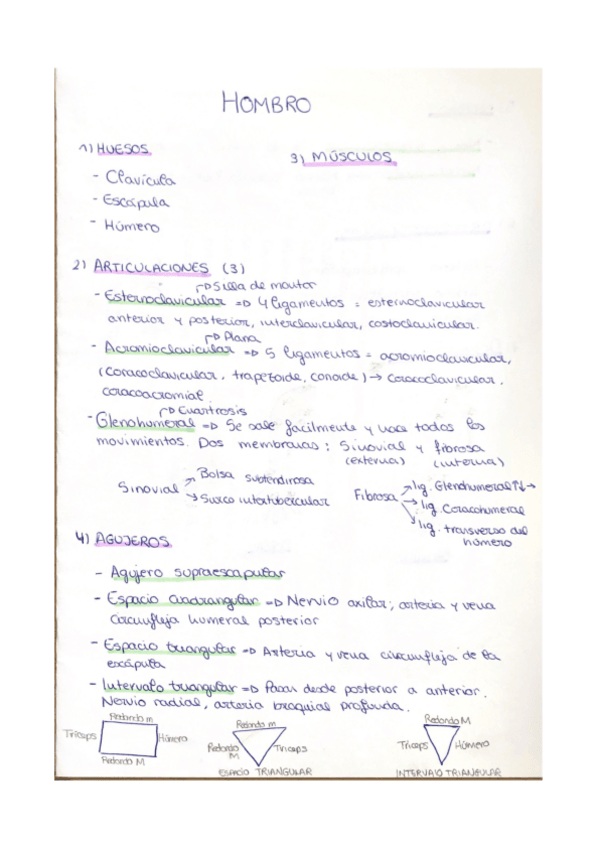 HOMBRO
1) HUESOS
- Clavícula
- Escápula
- Húmero
3) MÚSCULOS
2) ARTICULACIONES (3)
Silla de montar
- Esternoclavicular => 4 ligamentos = esternoclavicular
anterior y posterior, interclavicular, costoclavicular.
Plana
- Acromioclavicular => 5 ligamentos = acromioclavicular,
(coracoclavicular, trapezoide, conoide) → coracoclavicular,
coracoacromial
Enartrosis
- Glenohumeral => Se sale facilmente y hace todos los
movimientos. Dos membranas: Sinovial y fibrosa
(externa) (interna)
Sinovial
Bolsa subtendinosa
Surco intertubercular
Fibrosa
lig. Glenohumeral ↑↓→
lig. Coracohumeral
lig. transverso del
húmero
4) AGUJEROS
- Agujero supraescapular
- Espacio cuadrangular => Nervio axilar, arteria y vena
circunfleja humeral posterior
- Espacio triangular => Arteria y vena circunfleja de la
escápula
- Intervalo triangular => Pasar desde posterior a anterior.
Nervio radial, arteria braquial profunda.
Redondo m
Triceps
Húmero
Redondo M
Redondo m
Redondo
M
Triceps
ESPACIO TRIANGULAR
Redondo M
Triceps
Húmero
INTERVALO TRIANGULAR